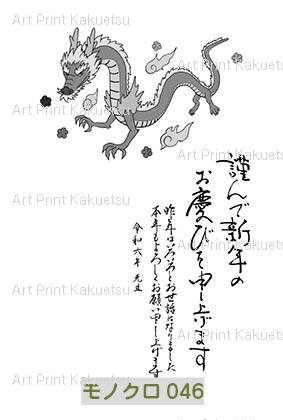 Art Print Kakuetsu
Art Print Kakuetsu
Art Print Kakuetsu
Art Print Kakuetsu
Art Print Kakuetsu
Art Print Kakuetsu
Art Print Kakuetsu
Art Print Kakuetsu
Art Print Kakuetsu
Art Print Kakuetsu
Art Print Kakuetsu
Art Print Kakuetsu
謹んで新年の
お慶びを申し上げます
昨年はいろいろとお世話になりました
本年もよろしくお願い申し上げます
令和六年 元旦
モノクロ 046